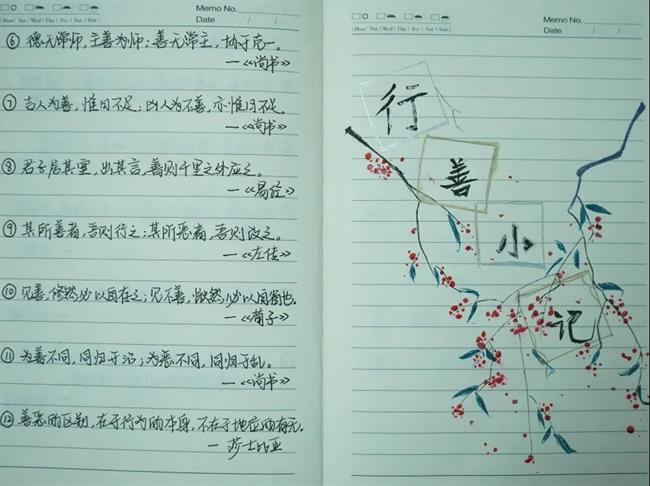 Memo No.
Mon / Tue / Wed / Thu / Fri / Sat / Sun
Date / /
⑥ 德无常师,主善为师;善无常主,协于克一。
—《尚书》
⑦ 吉人为善,惟日不足;凶人为不善,亦惟日不足。
—《尚书》
⑧ 君子居其室,出其言,善则千里之外应之。
—《易经》
⑨ 其所善者,吾则行之;其所恶者,吾则改之。
—《左传》
⑩ 见善,修然必以自存之;见不善,愀然必以自省也。
—《荀子》
⑪ 为善不同,同归于治;为恶不同,同归于乱。
—《尚书》
⑫ 善恶的区别,在于行为的本身,不在于地位的有无。
—莎士比亚
Memo No.
Mon / Tue / Wed / Thu / Fri / Sat / Sun
Date / /
行
善
小
记